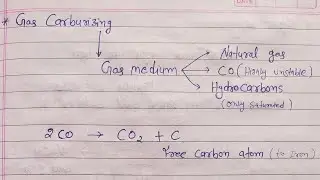 * Gas Carburising
Natural gas
Gas medium
CO (Highly unstable)
Hydrocarbons
(only saturated)
2CO → CO2 + C
Free carbon atom (to Iron)